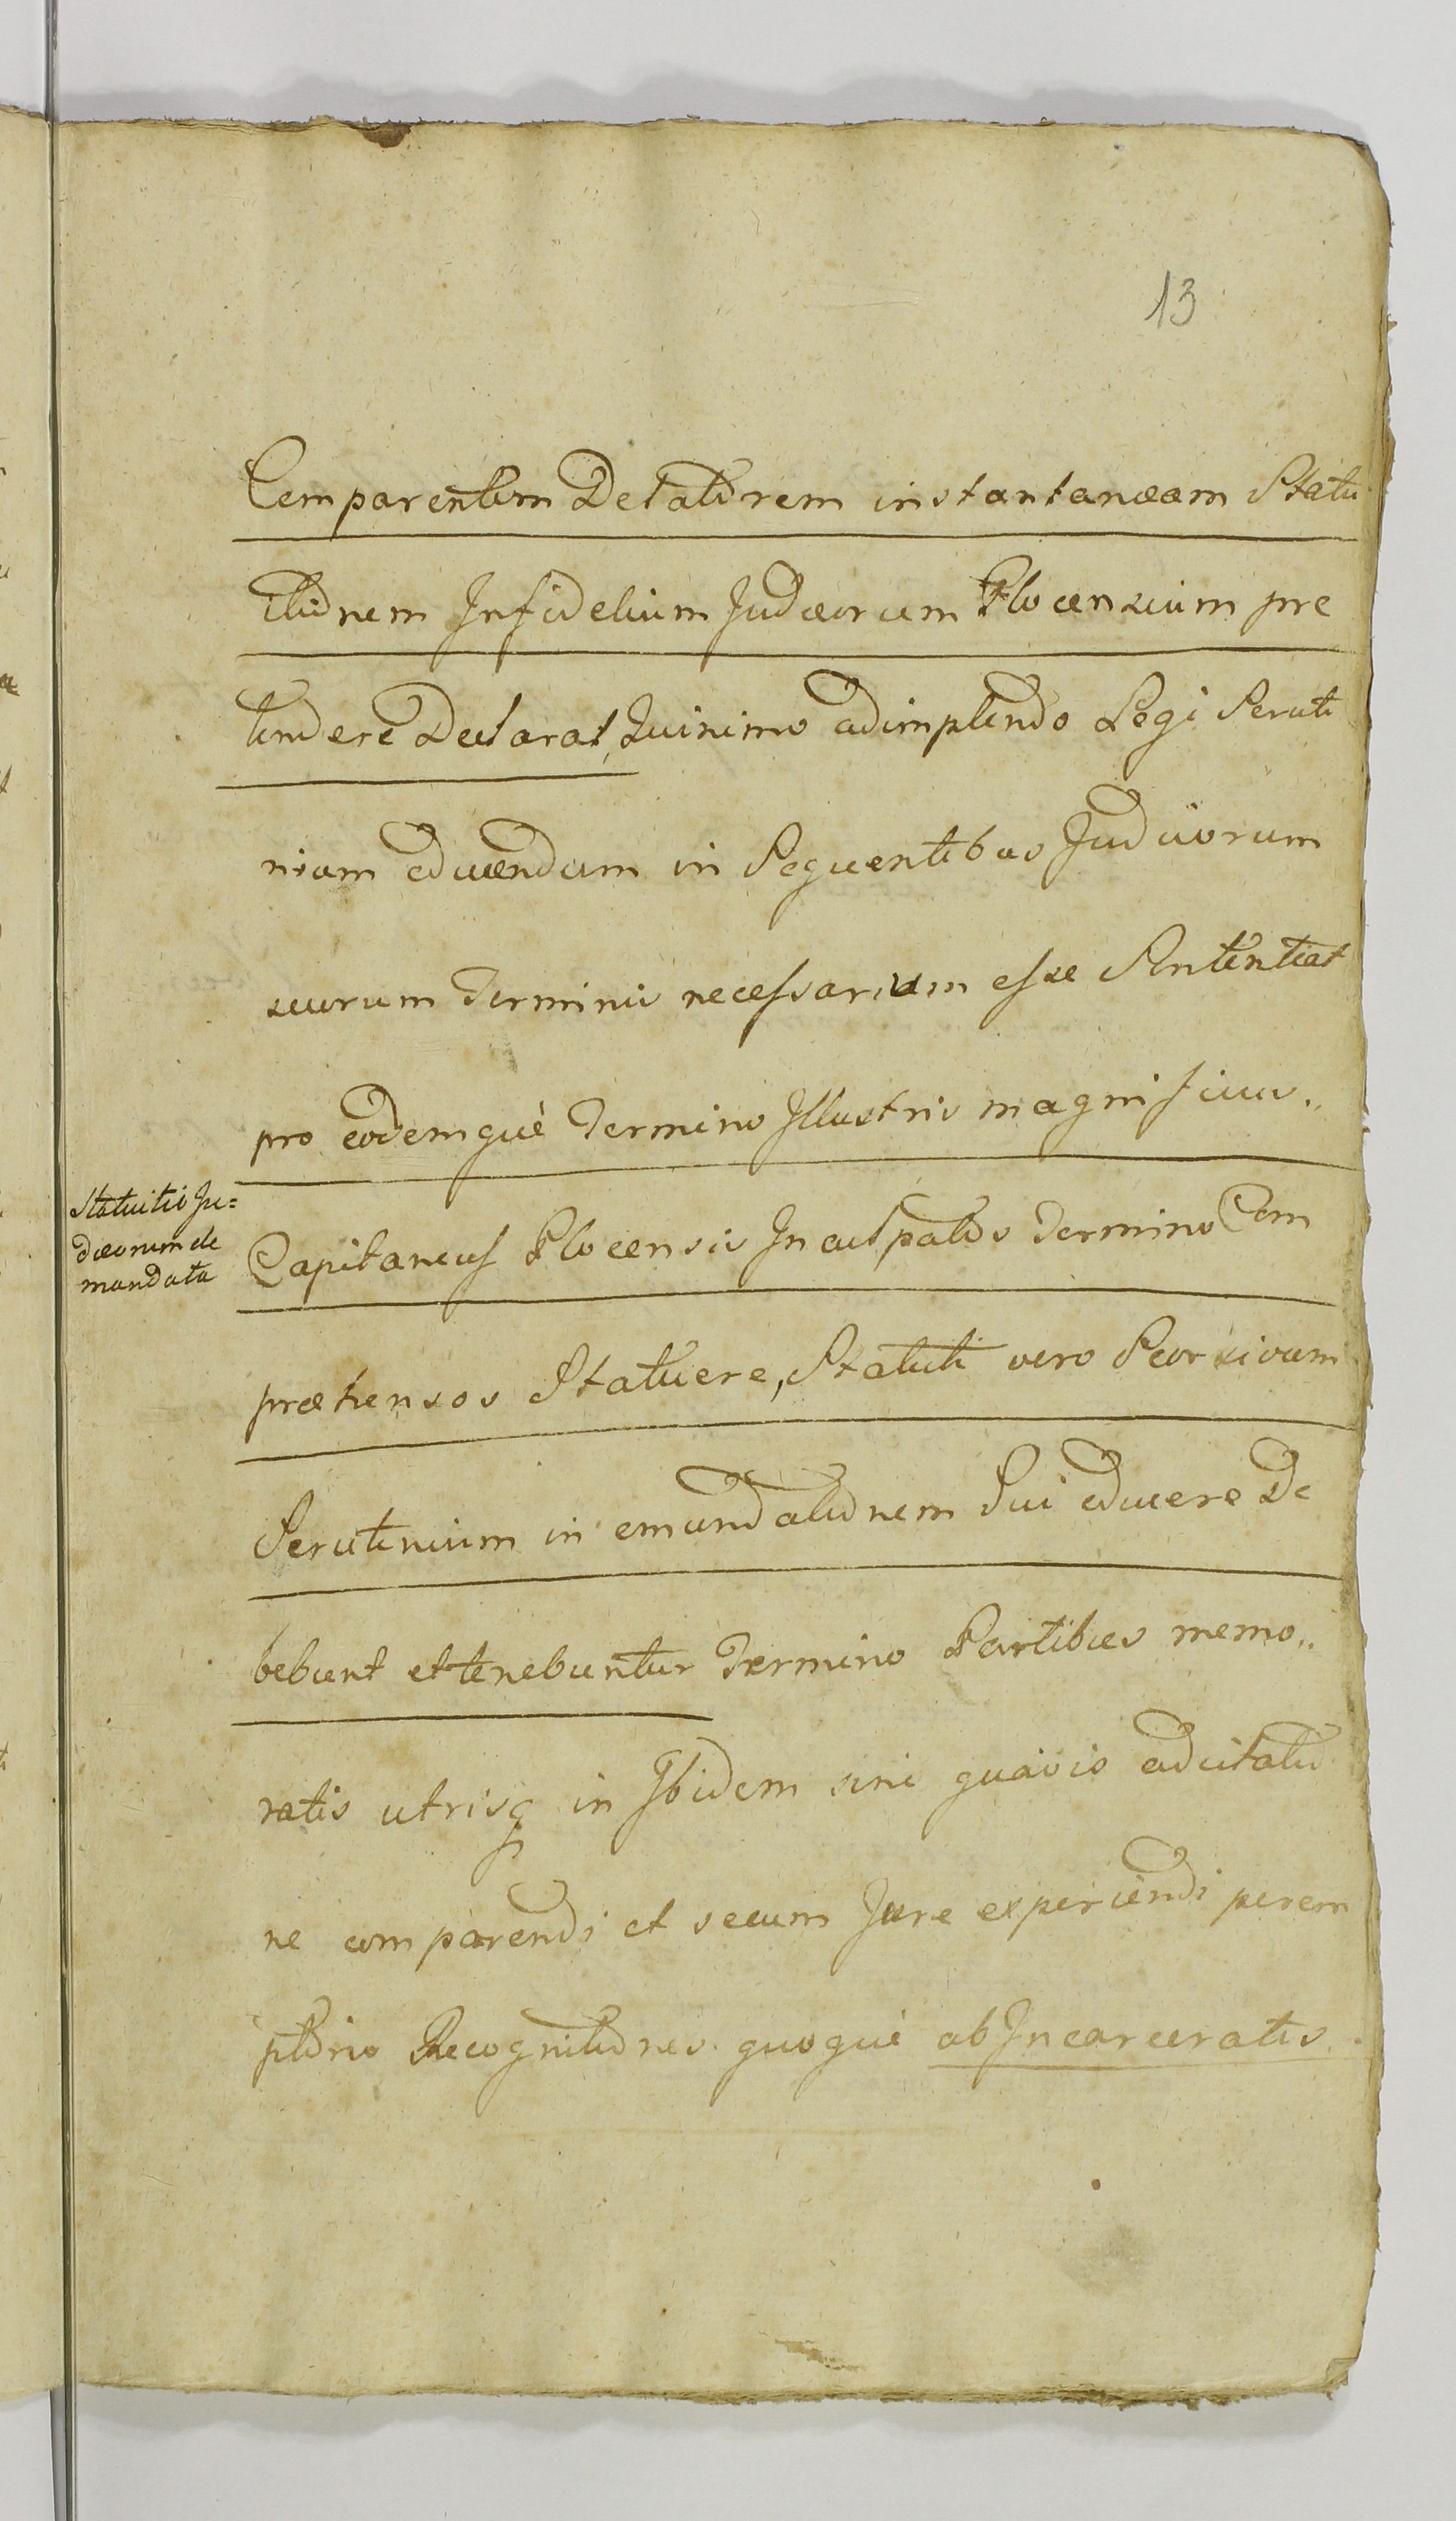 13
Comparentem Delatorem instantaneam Statu
itionem Infidelium Judæorum Plocensium præ
tendere Declarat, Quinimo adimplendo Legi Scruti
nium educendum in Sequentibus Judiciorum
suorum Terminis necessarium esse Sententiat
pro eodemque Termino Illustris magnificus„
Statuitio Ju=
dæorum de
mandata
Capitaneus Plocensis Inculpatos Termino Com
præhensos Statuere, Statuti vero Seorsivum
Scrutinium in emundationem Sui educere De
bebunt et tenebuntur Termino Partibus memo„
ratis utrisq in Ibidem sine quavis adcitatio
ne comparendi et secum Jure experiendi perem
ptorio Recognitiones quoque ab Incarceratis.